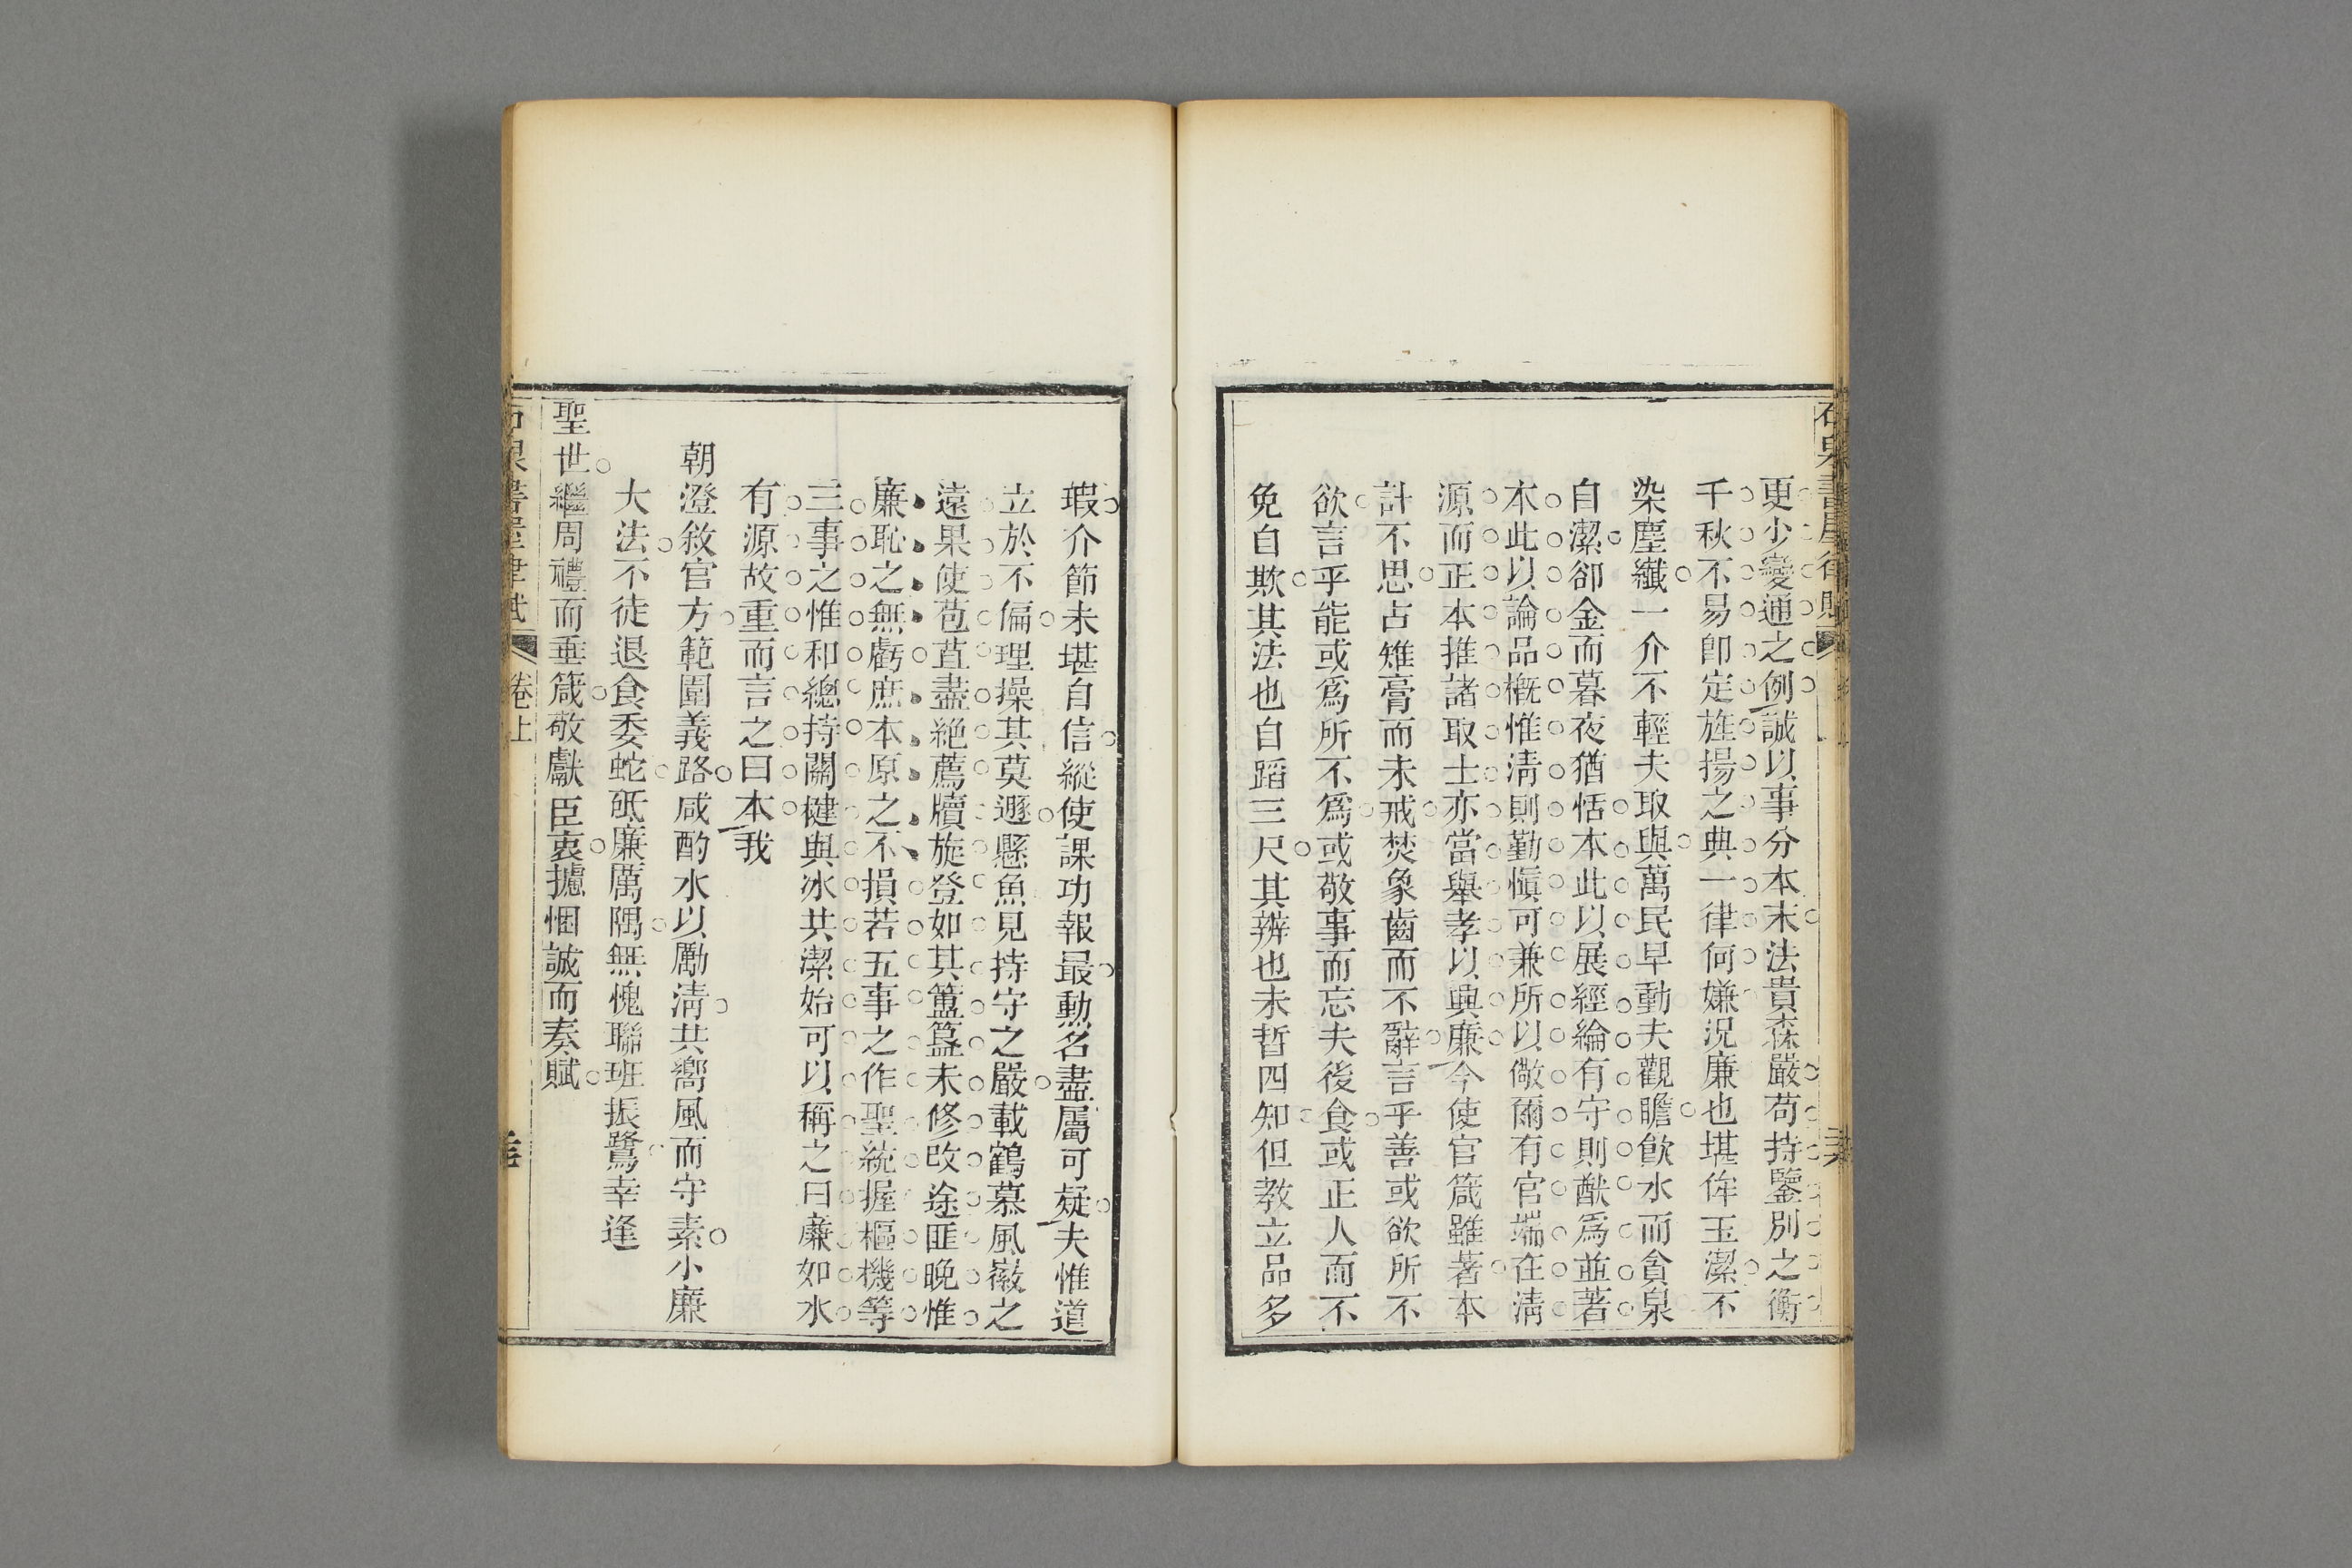 更少變通之例誠以事分本末法貴森嚴苟持鑒別之衡
千秋不易卽定旌揚之典一律何嫌況廉也堪侔玉潔不
染塵纖一介不輕夫取與萬民早動夫觀瞻飮水而貪泉
自潔卻金而暮夜猶恬本此以展經綸有守則猷爲並著
本此以論品槪惟淸則勤愼可兼所以儆爾有官端在淸
源而正本推諸取士亦當舉孝以興廉今使官箴雖著本
計不思占雉膏而未戒焚象齒而不辭言乎善或欲所不
欲言乎能或爲所不爲或敬事而忘夫後食或正人而不
免自欺其法也自蹈三尺其辨也未晢四知但教立品多
瑕介節未堪自信縱使課功報最勳名盡屬可疑夫惟道
立於不偏理操其莫遯懸魚見持守之嚴載鶴慕風徽之
遠果使苞苴盡絕薦牘旋登如其簠簋未修改途匪晚惟
廉恥之無虧庶本原之不損若五事之作聖統握樞機等
三事之惟和總持關鍵與冰共潔始可以稱之曰廉如水
有源故重而言之曰本我
朝澄敘官方範圍義路咸酌水以勵淸共嚮風而守素小廉
大法不徒退食委蛇砥廉厲隅無愧聯班振鷺幸逢
聖世繼周禮而垂箴敬獻臣衷攄悃誠而奏賦
石泉書屋律賦 卷上